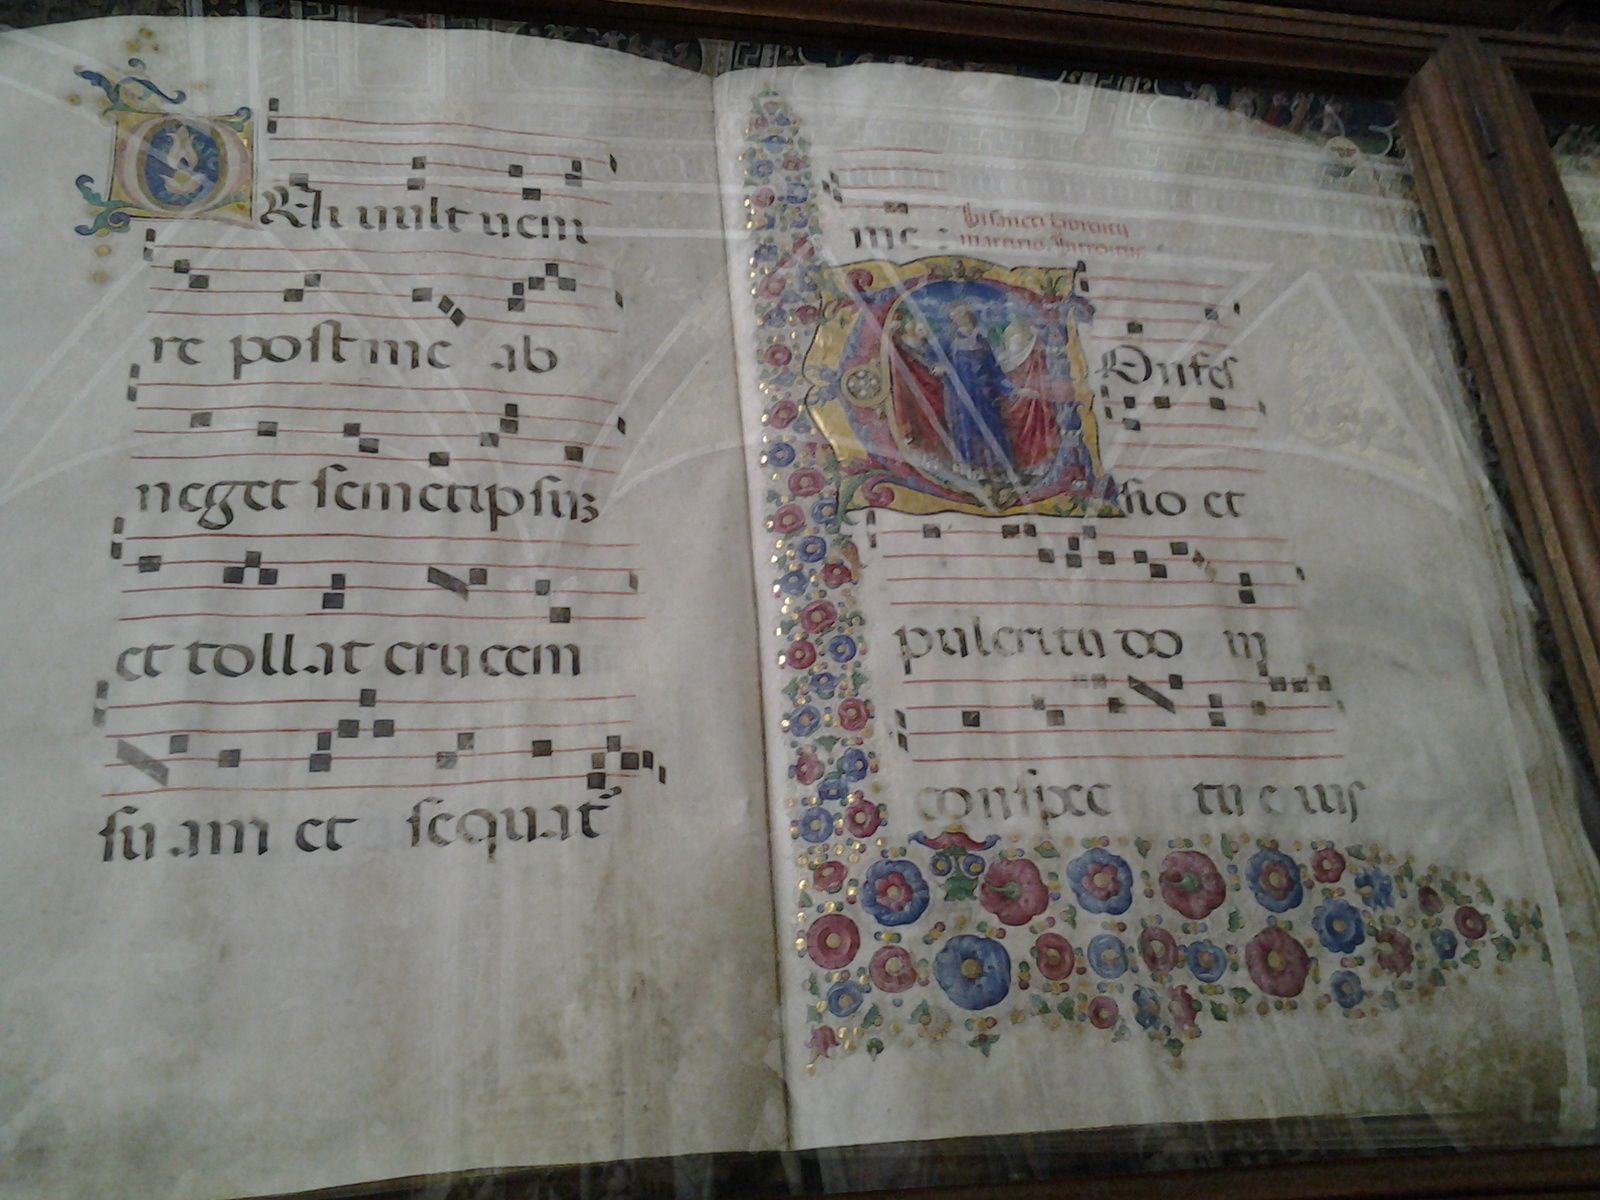 Qui vult veni
re post me ab
neget semetipsuz
et tollat crucem
suam et sequat
me:
sancti
martiris Introitus
Confes
sio et
pulcritudo in
conspec tu eius